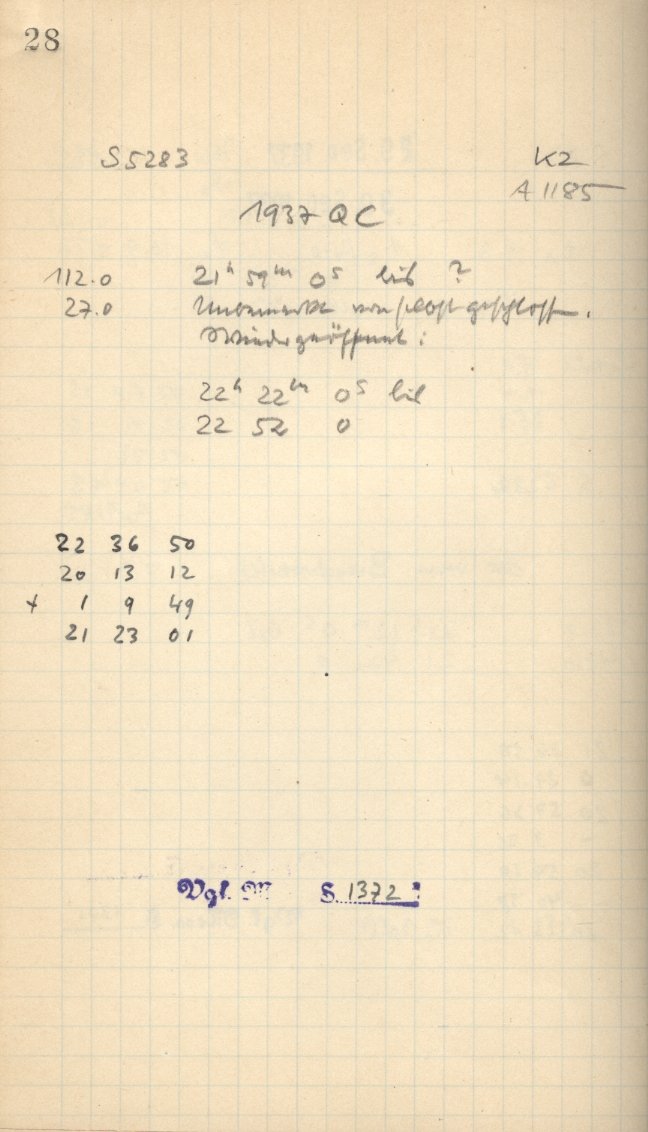 28
S5283 K2
A 1185
1937 QC
112.0 21ʰ 59ᵐ 0ˢ bis ?
27.0 Unbemerkt von selbst geschlossen.
Wiedergeöffnet:
22ʰ 22ᵐ 0ˢ bis
22 52 0
22 36 50
20 13 12
+ 1 9 49
21 23 01
Vgl. S. 1372